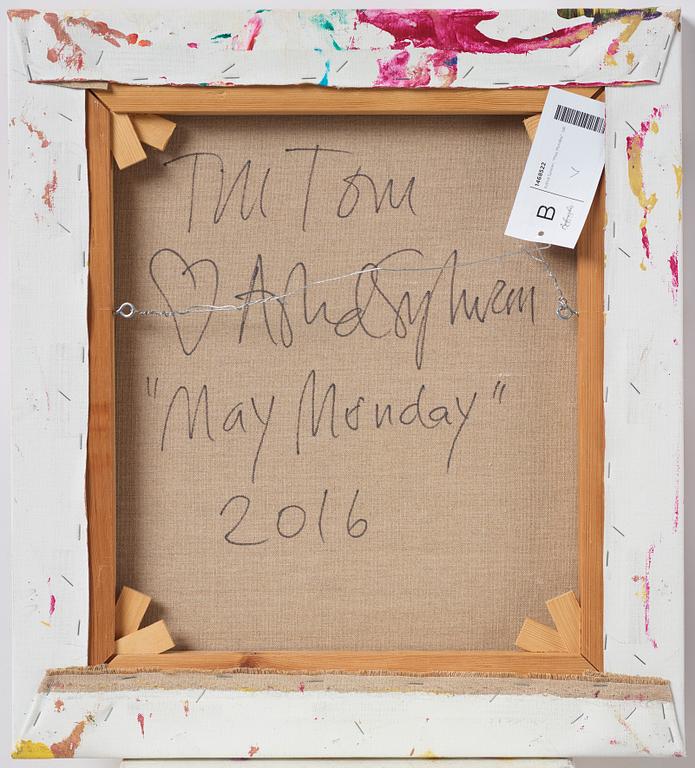 Till Tom
♡ Astrid Sylwan
"May Monday"
2016
1468522
B